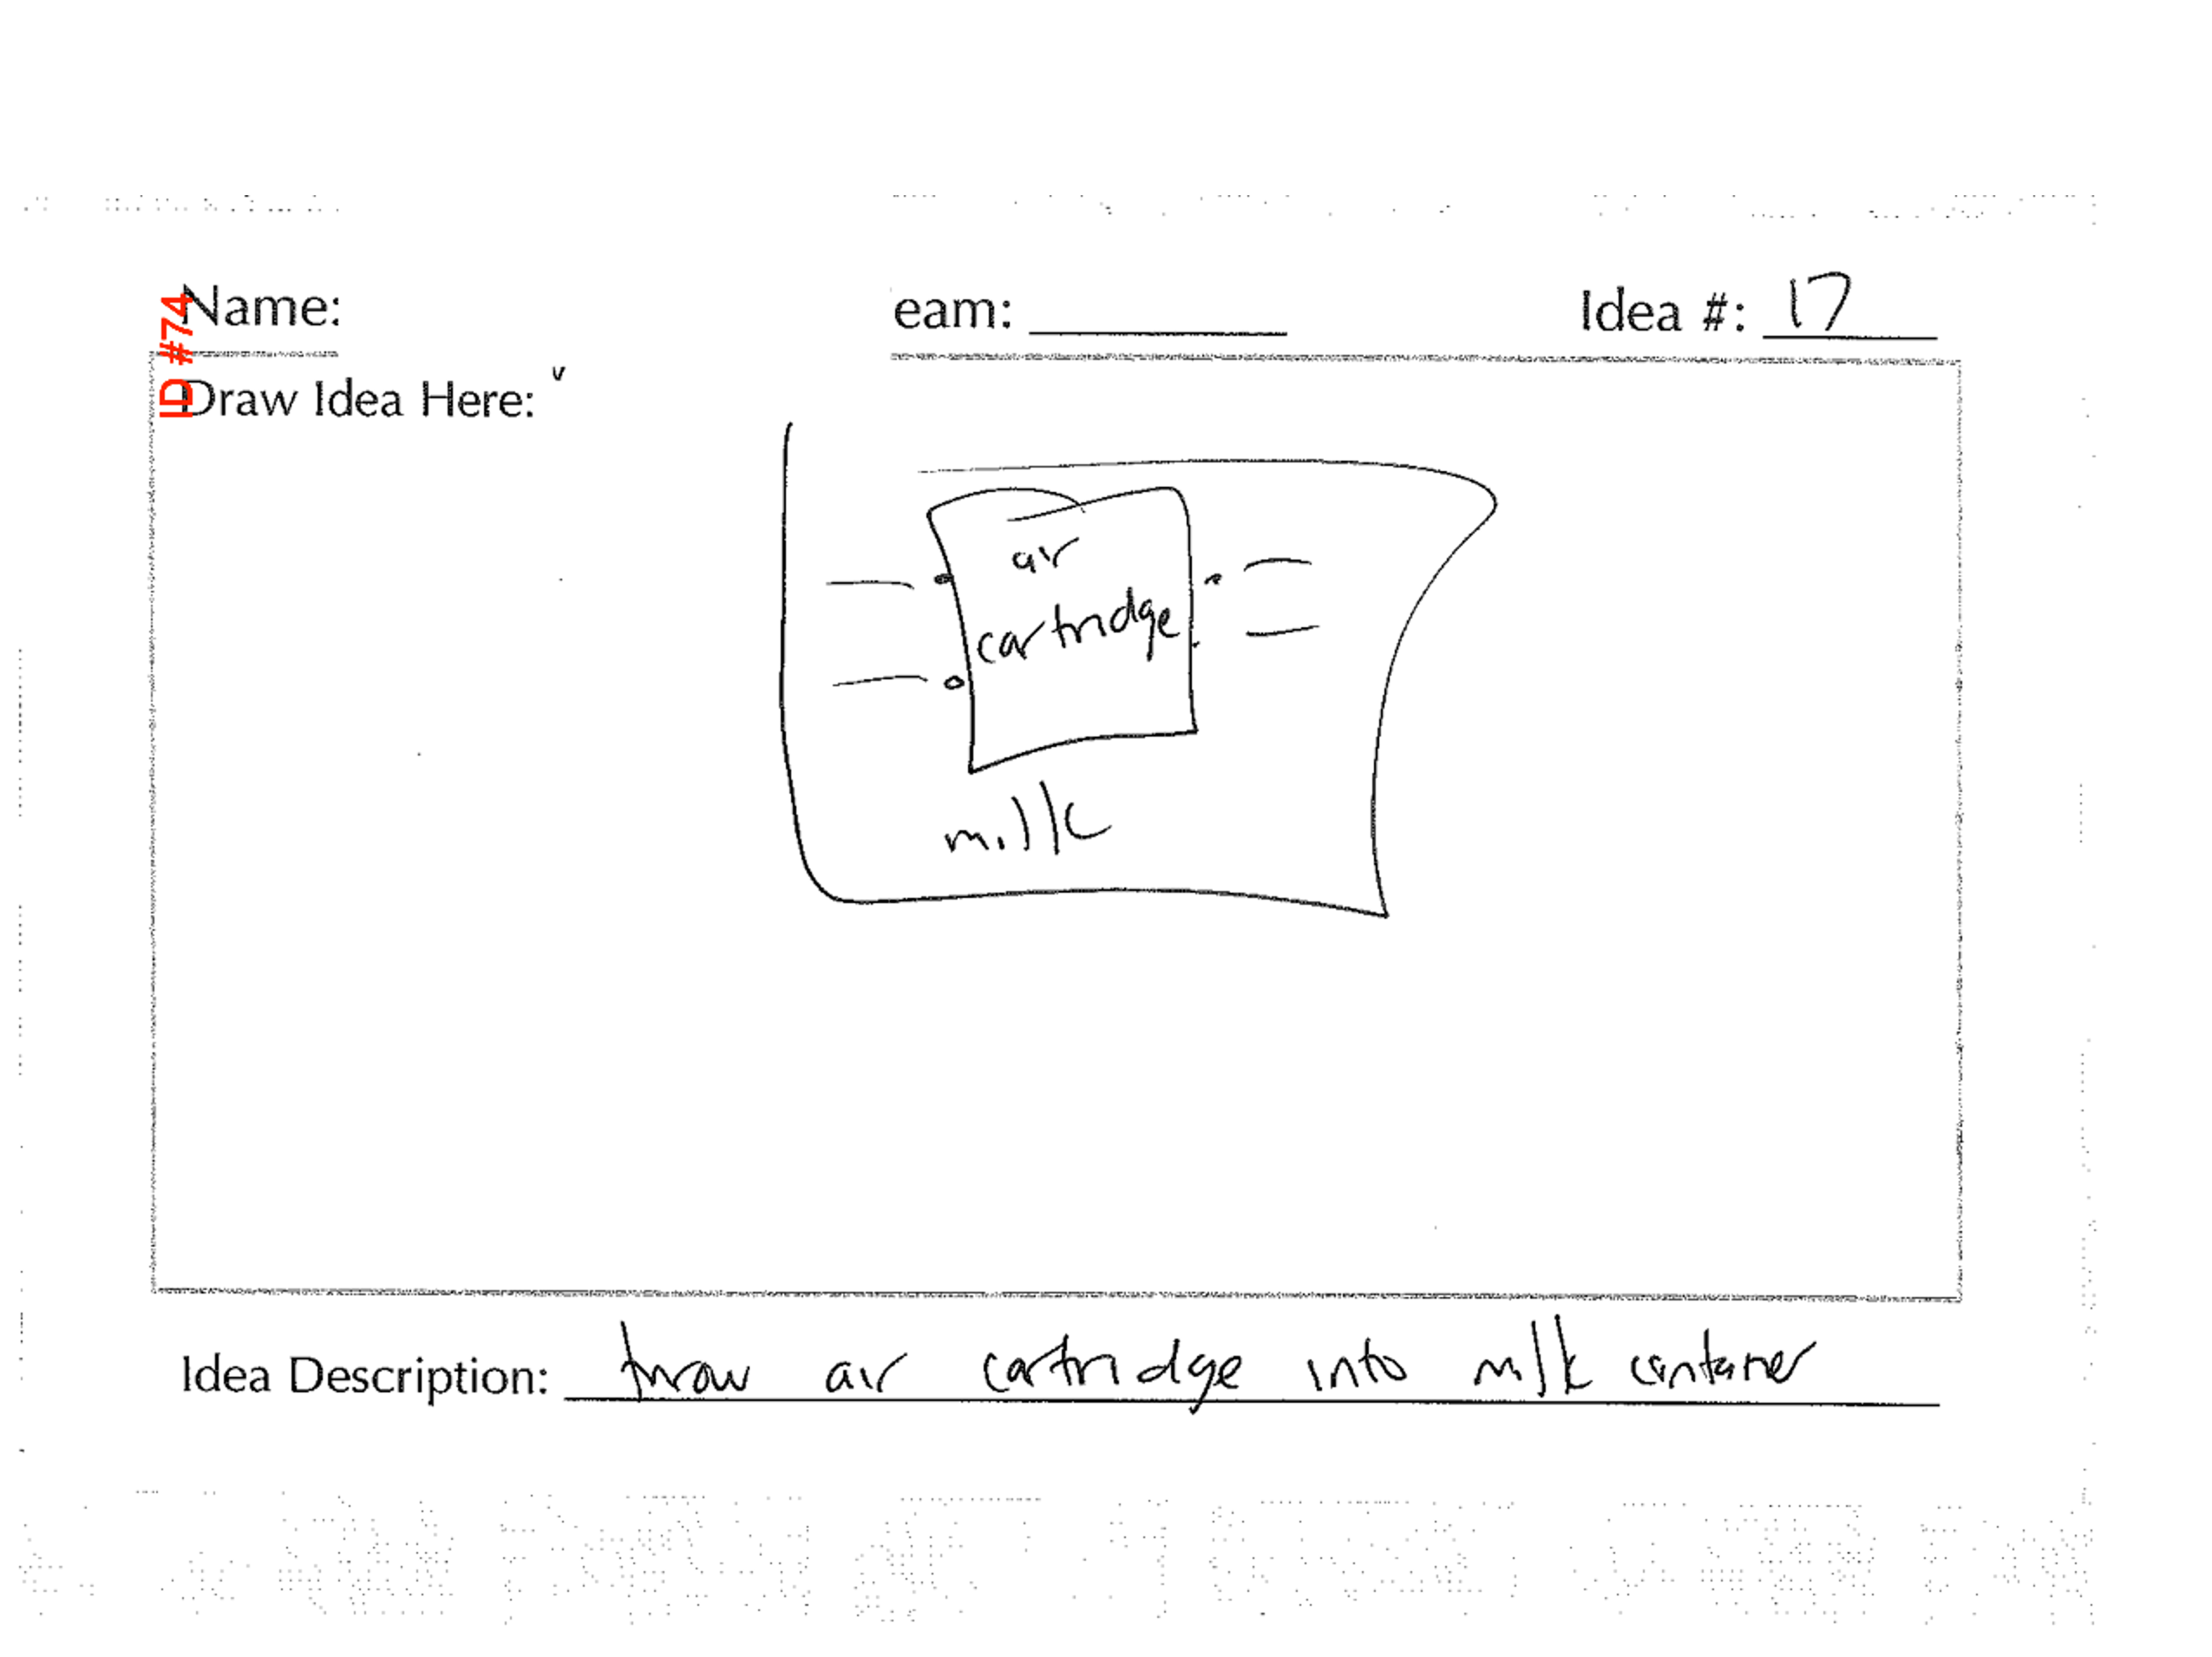 Name:
eam:
Idea #: 17
ID #74
Draw Idea Here:
air
cartridge
milk
Idea Description: throw air cartridge into milk container